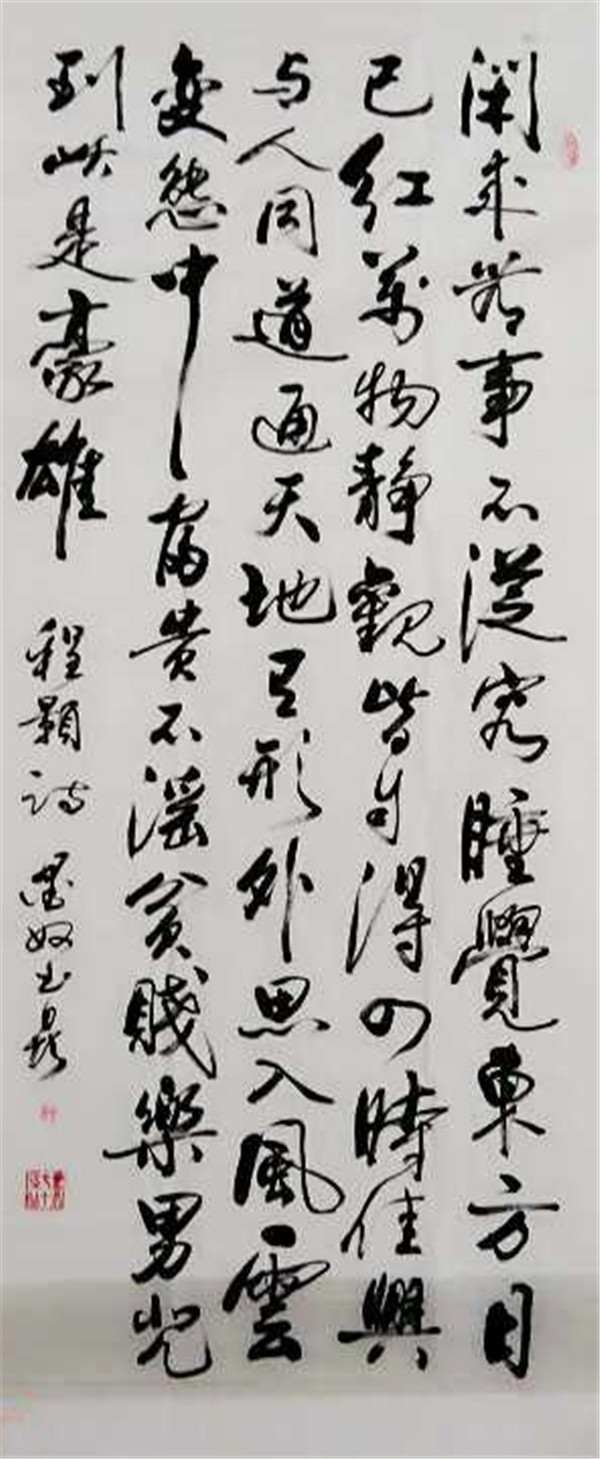 闲来无事不從容睡覺東方日
已红萬物静觀皆自得四時佳興
与人同道通天地有形外思入風雲
變態中富貴不淫貧賤樂男児
到此是豪雄 程颢诗 墨奴书